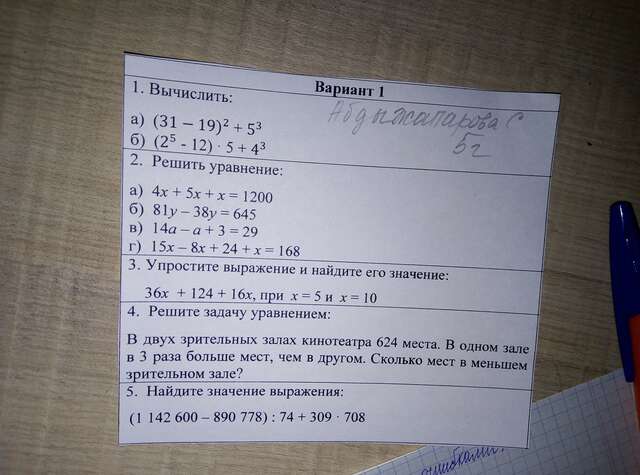 Вариант 1
1. Вычислить:
Абдыжапарова С
5г
а) (31 – 19)² + 5³
б) (2⁵ - 12) · 5 + 4³
2. Решить уравнение:
а) 4x + 5x + x = 1200
б) 81y – 38y = 645
в) 14a – a + 3 = 29
г) 15x – 8x + 24 + x = 168
3. Упростите выражение и найдите его значение:
36x + 124 + 16x, при x = 5 и x = 10
4. Решите задачу уравнением:
В двух зрительных залах кинотеатра 624 места. В одном зале
в 3 раза больше мест, чем в другом. Сколько мест в меньшем
зрительном зале?
5. Найдите значение выражения:
(1 142 600 – 890 778) : 74 + 309 · 708